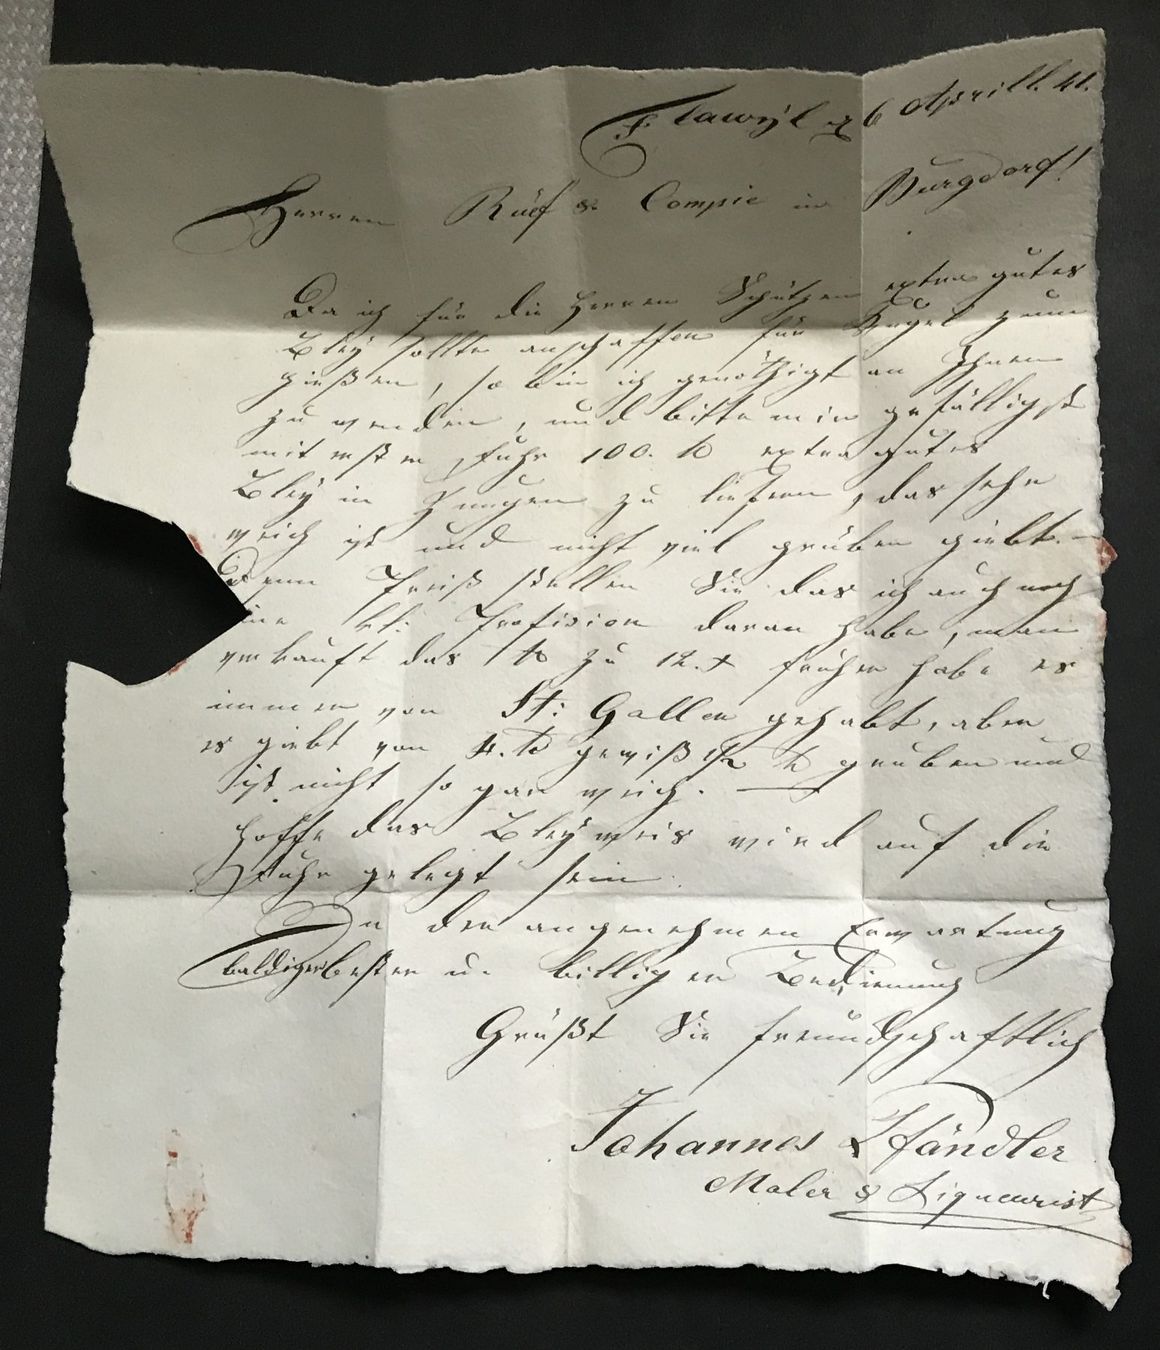 Flawyl d 6 Aprill. 41.
Herren Rüef & Compie in Burgdorf!
Da ich für die Herren Schützen extra gutes
Bley sollte anschaffen für Kugel zum
gießen, so bin ich genöthigt an Ihnen
zu wenden, und bitte mir gefälligst
mit erster Fuhr 100. ℔ extra gutes
Bley in zu liefern, das sehr
weich ist und nicht viel grüben giebt. –
Denn Preiß stellen Sie das ich auch noch
eine kl: Profision daran habe, man
verkauft das ℔ zu 12. x früher habe es
immer von St: Gallen gehabt, aber
es giebt von 4. ℔ gewiß 1/2 ℔ gruben und
ist nicht so gar weich. —
Hoffe das Bleyweis wird auf die
Fuhr gelegt sein.
In der angenehmen Erwartung
baldiger bester u. billiger Bedienung
Grüßt Sie freundschaftlich
Johannes Pfändler
Maler & Liqueurist